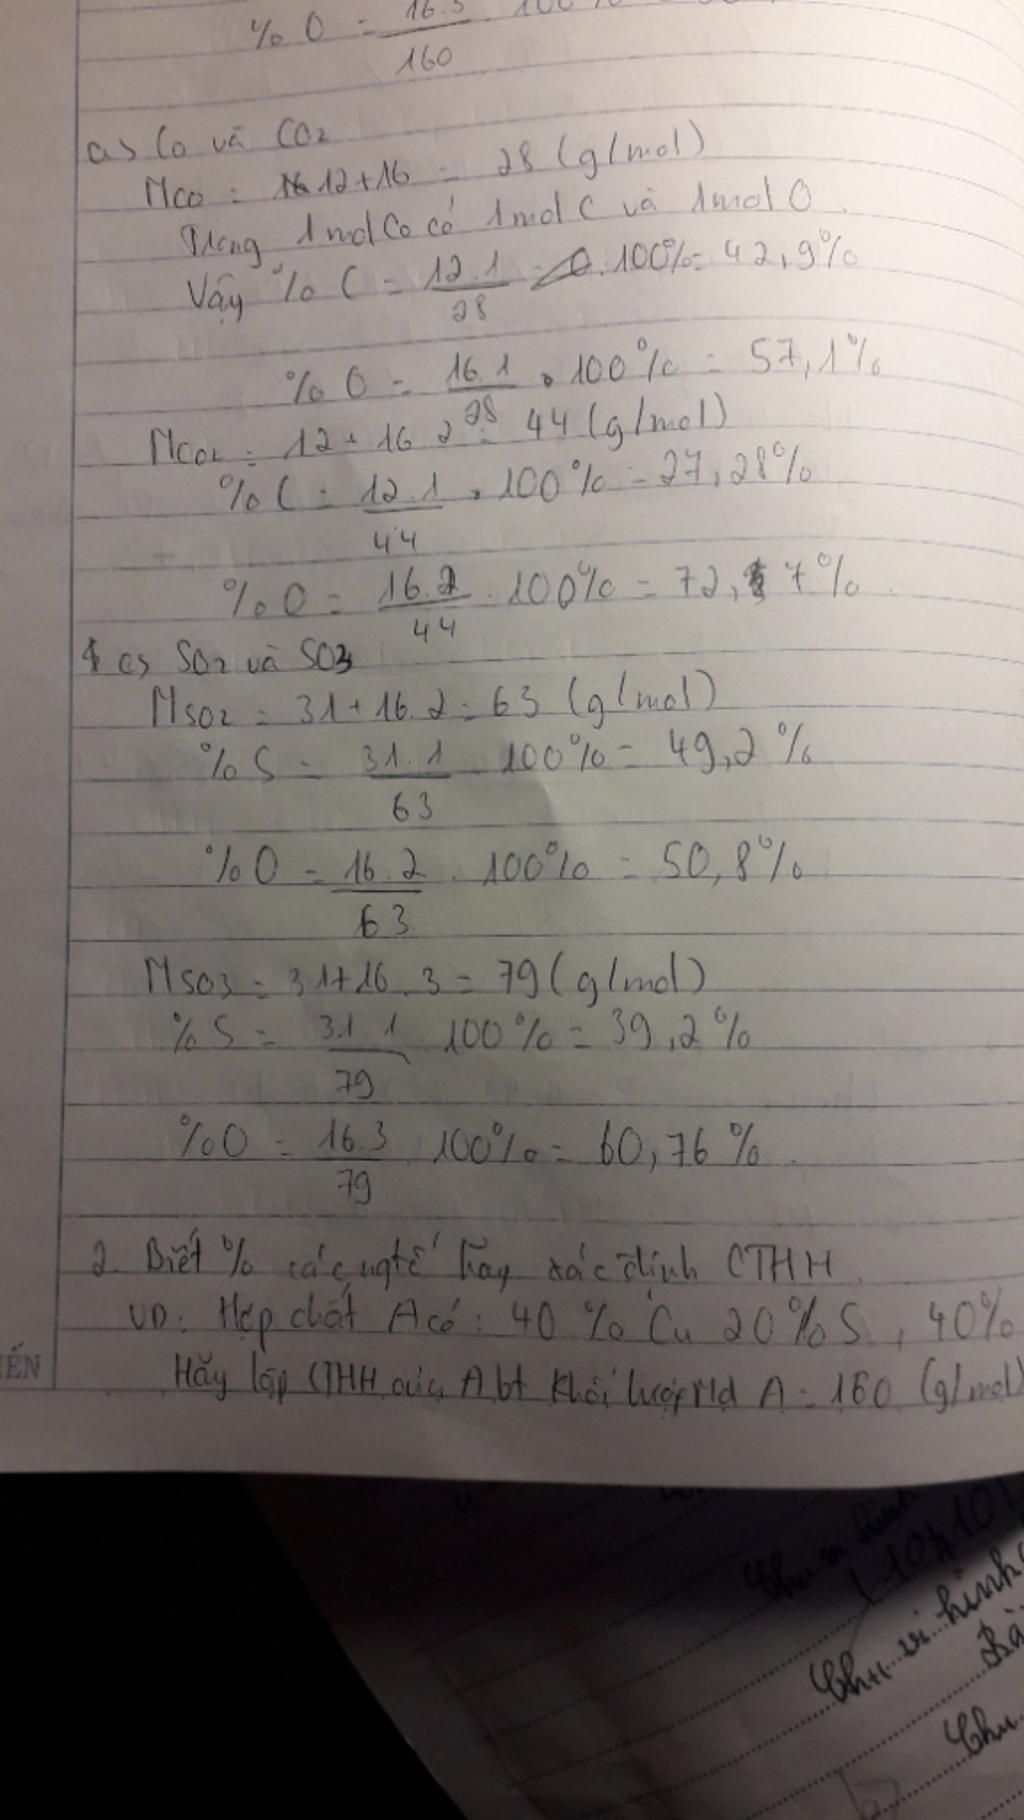 % O = 16.3 100%
160
a> Co và CO2
MCO = 12+16 = 28 (g/mol)
Trong 1mol Co có 1mol C và 1mol O.
Vậy % C = 12.1 .100% = 42,9%
28
% O = 16.1 . 100% = 57,1%
28
MCO2 = 12+16.2 = 44 (g/mol)
% C = 12.1 . 100% = 27,28%
44
% O = 16.2 . 100% = 72,7%.
44
c> SO2 và SO3
MSO2 = 31+16.2 = 63 (g/mol)
% S = 31.1 100% = 49,2%
63
% O = 16.2 . 100% = 50,8%
63
MSO3 = 31+16.3 = 79 (g/mol)
% S = 31 1 100% = 39,2%
79
%O = 16.3 100% = 60,76%.
79
2. Biết % các ngtố hãy xác định CTHH
VD: Hợp chất A có: 40% Cu 20% S, 40%
Hãy lập CTHH của A bt khối lượng A = 160 (g/mol)
ẾN
Chu vi hình
Chu vi hình
Bà
Chu